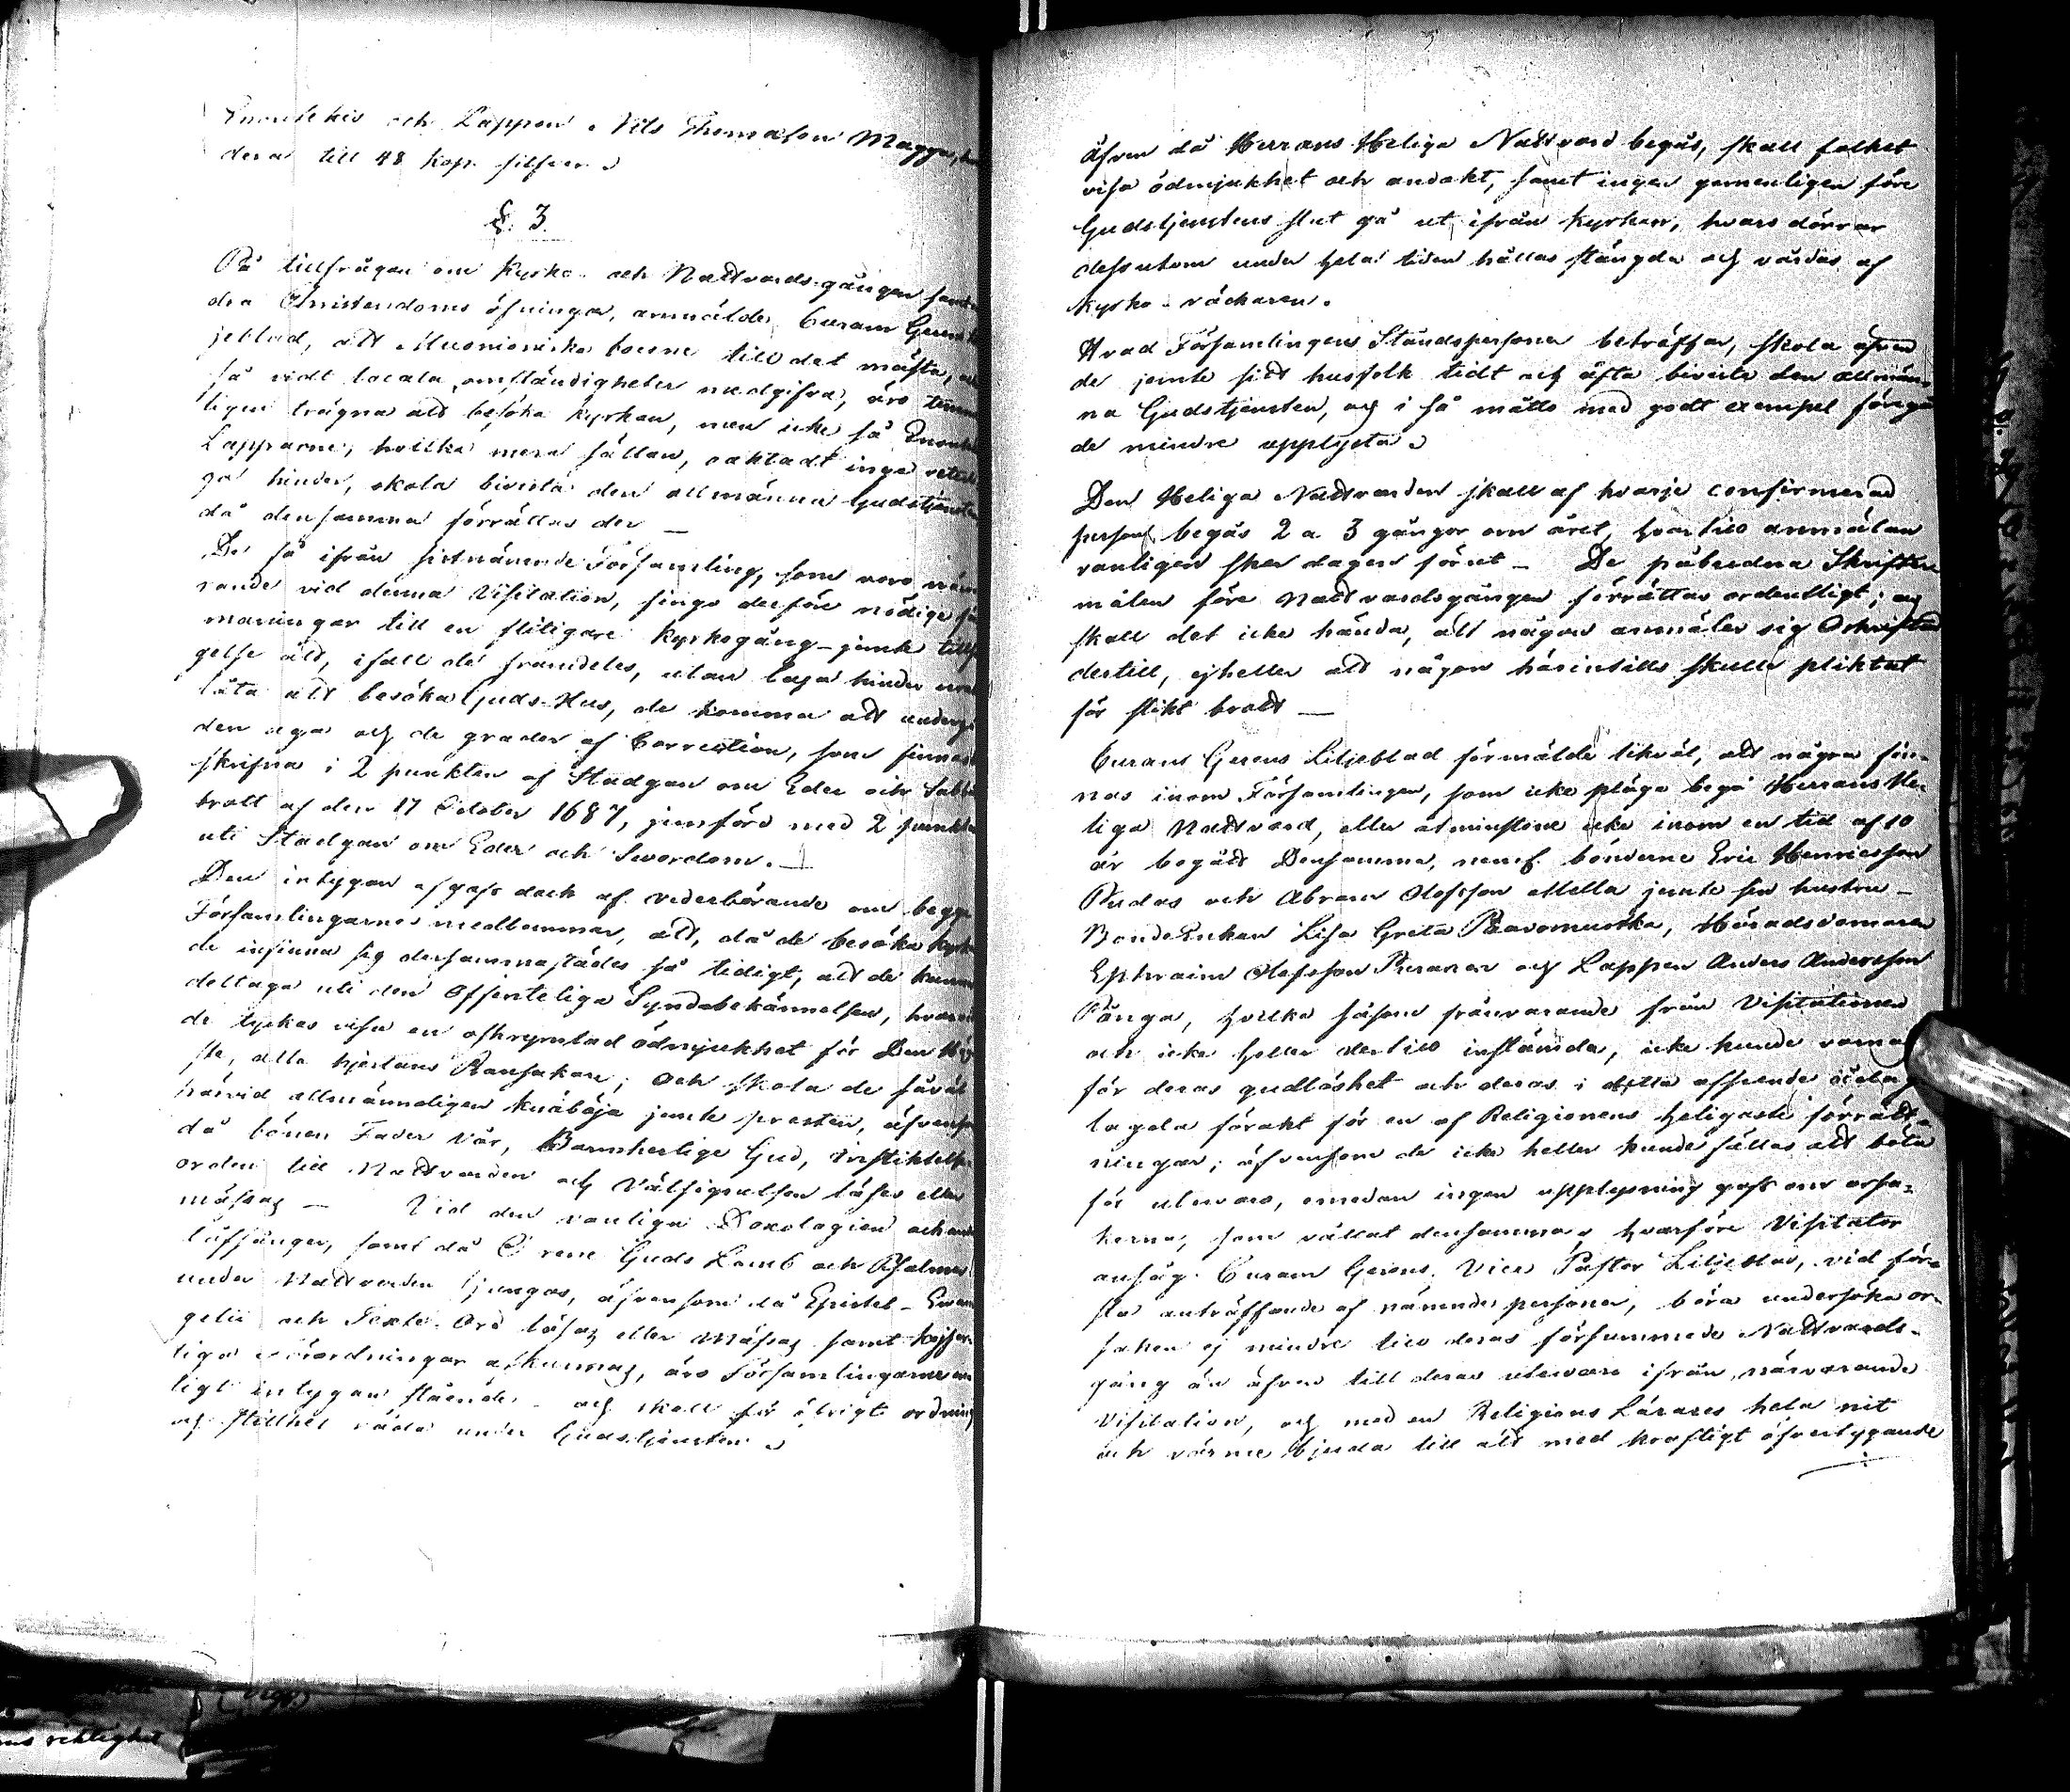 Enontekis och Lappen Nils Thomasson Magga,
dera till 48 kop. silfver.
§. 3.
På tillfrågan om Kyrko- och Nattvards-gången
dra Christendoms öfningar, anmälde Curam Gerens
jeblad, att Muonioniska boerne till det mästa,
så vidt locala omständigheter medgifva, äro
ligen trägna att besöka kyrkan, men icke så
Lapparne, hvilka mera sällan, oaktadt inga
ga hinder, skola bivista den allmänna Gudstjensten
då densamma förrättas der —
De så ifrån sistnämnde Församling, som voro
rande vid denna Visitation, fingo derföre nödige
maningar till en flitigare kyrkogång jemte
gelse att, ifall de framdeles, utan laga hinder
låta att besöka Guds Hus, de komma att undergå
den aga och de grader af Correction, som finnas
skrifna i 2 punkten af Stadgan om Eder och Sabbats
brott af den 17 October 1687, jemförd med 2 punkten
uti Stadgan om Eder och Svordom. —
Den intygan afgafs dock af vederbörande om begge
Församlingarnes medlemmar, att, då de besöka kyrkan
de infinna sig dersammastädes så tidigt, att de kunna
deltaga uti den Offenteliga Syndabekännelsen,
de tyckas visa en oskrymtad ödmjukhet för Den
ste, alla hjertans Ransakare; och skola de såväl
härvid allmänneligen knäböja jemte presten, äfvensom
då bönen Fader Vår, Barmhertige Gud, Instiktelse
orden till Nattvarden och Välsignelsen läses eller
mässas — Vid den vanliga Doxologien och
lofsånger, samt då O rene Guds Lamb och Psalmer
under Nattvarden sjungas, äfvensom då Epistel-
gelii och Texte Ord läsas eller Mässas samt
liga Förordningar afkunnas, äro Församlingarne
ligt intygan stående och skall för öfrigt ordning
och stillhet råda under Gudstjensten.
Äfven då Herrans Heliga Nattvard begås, skall folket
visa ödmjukhet och andakt, samt ingen gemenligen före
Gudstjenstens slut gå ut ifrån kyrkan, hvars dörrar
dessutom under hela tiden hållas stängda och vårdas af
kyrko-väckaren.
Hvad Församlingens Ståndspersoner beträffar, skola äfven
de jemte sitt husfolk tidt och ofta bivista den allmän-
na Gudstjensten, och i så måtto med godt exempel föregå
de mindre upplysta.
Den Heliga Nattvarden skall af hvarje confirmerad
person begås 2 a 3 gångor om året, hvartill anmälan
vanligen sker dagen förut — De påbudna Skrifter
målen före Nattvardsgången förrättas ordentligt; och
skall det icke hända, att någon anmäler sig Oskriftad
dertill, ejheller att någon härintills skulle pliktat
för slikt brott —
Curam Gerens Liljeblad förmälde likväl, att några fin-
nas inom Församlingen, som icke pläga begå Herrans He-
liga Nattvard, eller åtminstone icke inom en tid af 10
år begått Densamma, neml. bönderne Eric Henricsson
Rudas och Abram Olofsson Mella jemte sin hustru —
BondeEnkan Lisa Greta Raavomustka, Häradsdomaren
Ephraim Olofsson och Lappen Anders Andersson
Pånga, hvilka såsom frånvarande från Visitationen
och icke heller dertill instämda, icke kunde varnas
för deras gudlöshet och deras i detta afseende
lagda förakt för en af Religionens heligaste förrätt-
ningar; äfvensom de icke heller kunde fällas att böta
för utevaro, emedan ingen upplysning gafs om orsa-
kerna, som vållat densamma, hvarföre Visitator
ansåg Curam Gerens, Vice Pastor Liljeblad, vid för-
sta anträffande af nämnde personer, böra undersöka or-
saken ej mindre till deras försummade Nattvards-
gång än äfven till deras utevaro ifrån närvarande
Visitation, och med en Religions Lärares hela nit
och värme bjuda till att med kraftigt öfvertygande
rektighet